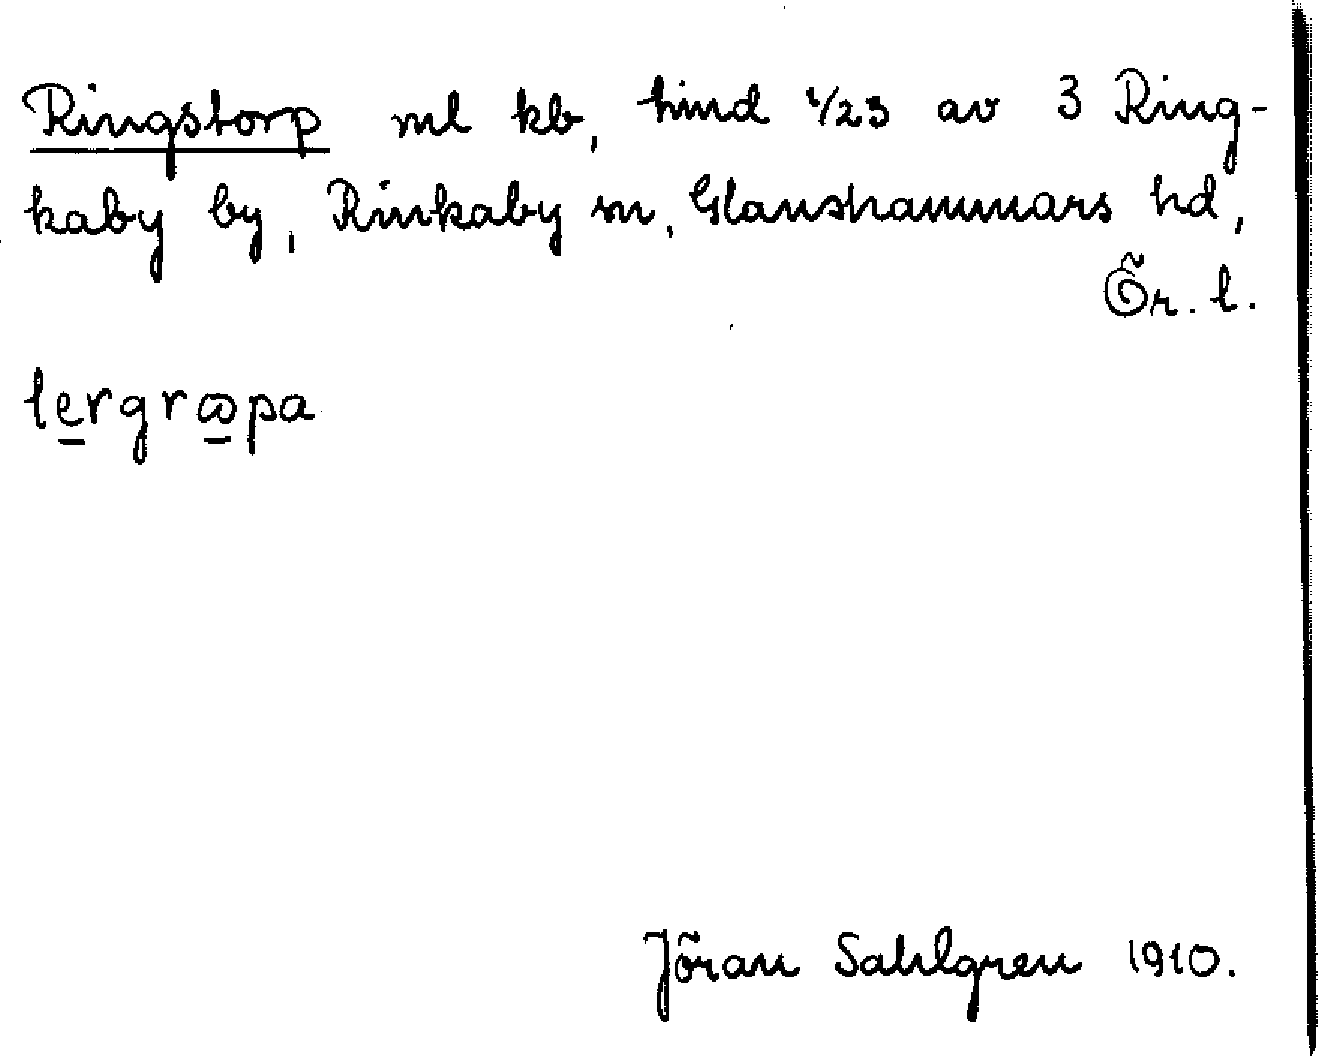 Ringstorp ml kb, hmd 1/23 av 3 Ring-
kaby by, Rinkaby sn, Glanshammars hd,
Ör. l.
lergrꞷpa
Jöran Sahlgren 1910.